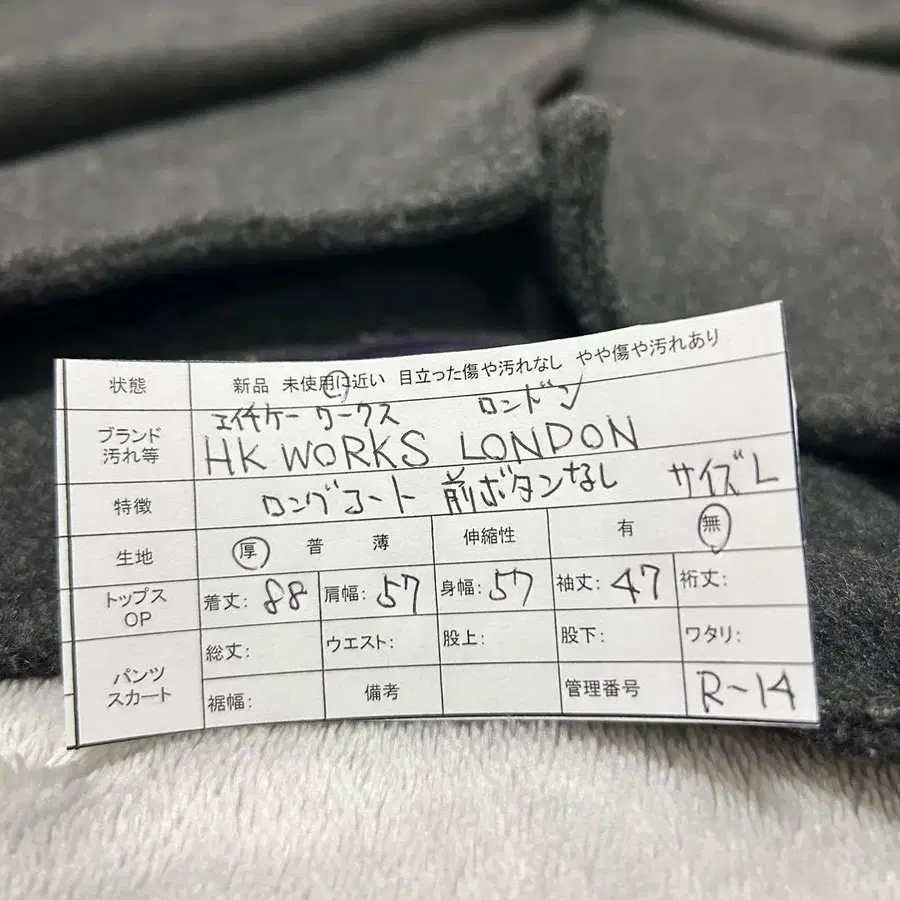 状態 新品 未使用に近い 目立った傷や汚れなし やや傷や汚れあり
エイチケー ワークス ロンドン
ブランド 汚れ等 HK WORKS LONDON
特徴 ロングコート 前ボタンなし サイズL
生地 厚 普 薄 伸縮性 有 無
トップス OP 着丈: 88 肩幅: 57 身幅: 57 袖丈: 47 裄丈:
パンツ スカート 総丈: ウエスト: 股上: 股下: ワタリ:
裾幅: 備考 管理番号 R-14